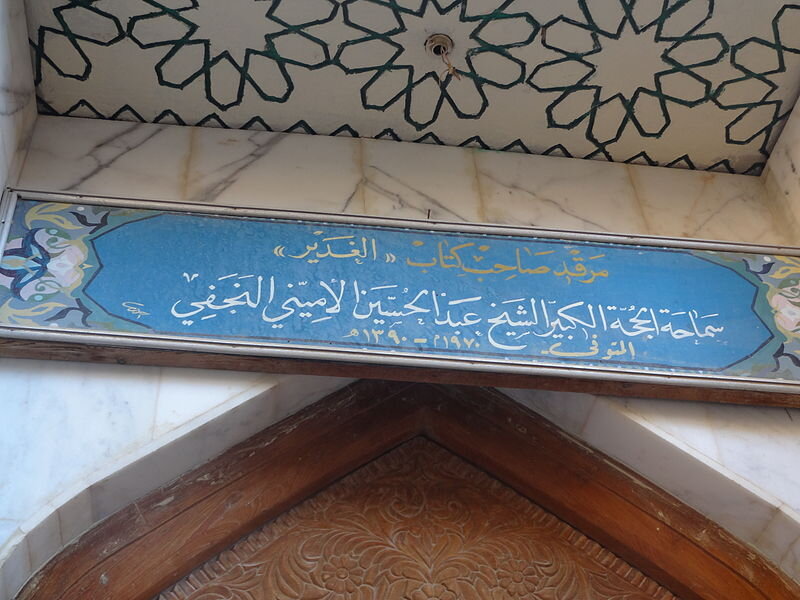 مَرقَد صَاحِبْ كتابْ « الغَدَيْر »
سَمَاحَة الحُجّة الكَبيرْ الشيَخ عَبدَ الحُسَيَن الأمِيّني النَجَفي
المتوفي: ١٩٧٠م - ١٣٩٠هـ